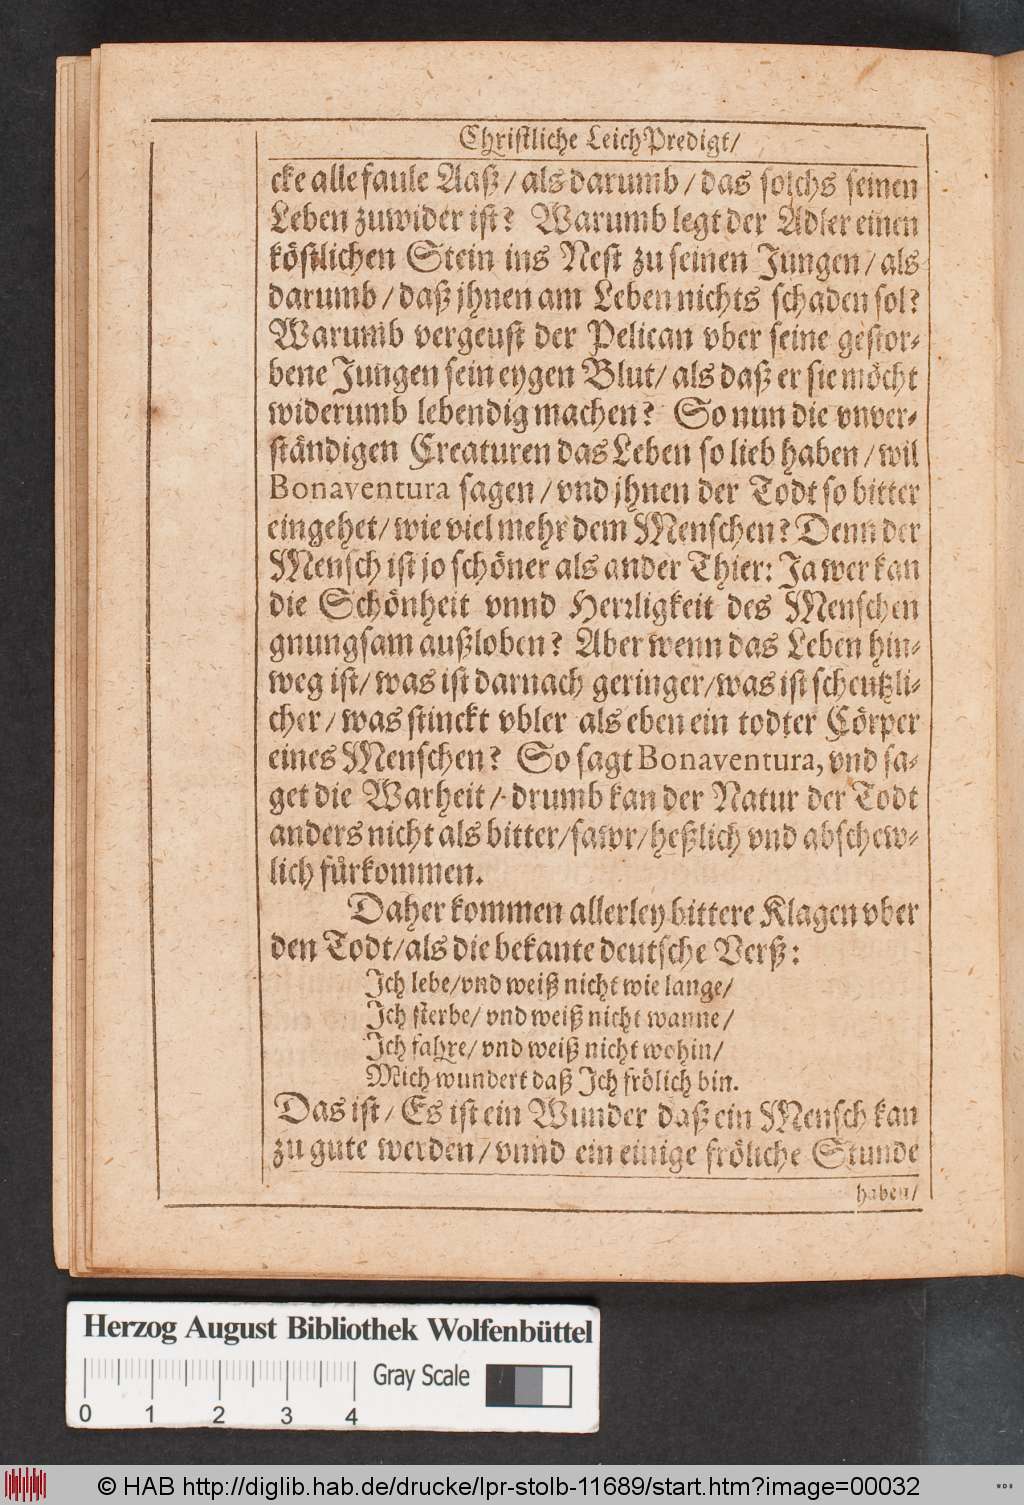 Christliche LeichPredigt/
cke alle faule Aaß/ als darumb/ das solchs seinen
Leben zuwider ist? Warumb legt der Adler einen
köstlichen Stein ins Nest zu seinen Jungen/ als
darumb/ daß jhnen am Leben nichts schaden sol?
Warumb vergeust der Pelican vber seine gestor-
bene Jungen sein eygen Blut/ als daß er sie möcht
widerumb lebendig machen? So nun die vnver-
ständigen Creaturen das Leben so lieb haben/ wil
Bonaventura sagen/ vnd jhnen der Todt so bitter
eingehet/ wie viel mehr dem Menschen? Denn der
Mensch ist jo schöner als ander Thier: Ja wer kan
die Schönheit vnnd Herrligkeit des Menschen
gnungsam außloben? Aber wenn das Leben hin-
weg ist/ was ist darnach geringer/ was ist scheutzli-
cher/ was stinckt vbler als eben ein todter Cörper
eines Menschen? So sagt Bonaventura, vnd sa-
get die Warheit/ drumb kan der Natur der Todt
anders nicht als bitter/ sawr/ heßlich vnd abschew-
lich fürkommen.
Daher kommen allerley bittere Klagen vber
den Todt/ als die bekante deutsche Verß:
Ich lebe/ vnd weiß nicht wie lange/
Ich sterbe/ vnd weiß nicht wanne/
Ich fahre/ vnd weiß nicht wohin/
Mich wundert daß Ich frölich bin.
Das ist/ Es ist ein Wunder daß ein Mensch kan
zu gute werden/ vnnd ein einige fröliche Stunde
haben/
Herzog August Bibliothek Wolfenbüttel
Gray Scale
0 1 2 3 4
© HAB http://diglib.hab.de/drucke/lpr-stolb-11689/start.htm?image=00032